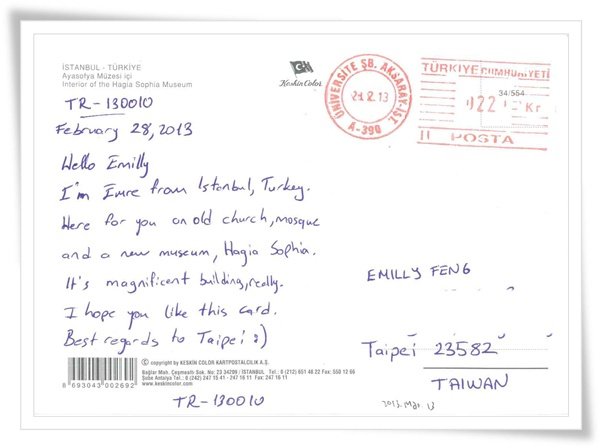 İSTANBUL - TÜRKİYE
Ayasofya Müzesi içi
Interior of the Hagia Sophia Museum
TR-130010
February 28, 2013
Hello Emilly
I'm Emre from Istanbul, Turkey.
Here for you an old church, mosque
and a new museum, Hagia Sophia.
It's magnificent building, really.
I hope you like this card.
Best regards to Taipei :)
Keskin Color
ÜNİVERSİTE ŞB. AKSARAY-İST.
28.2.13
A-390
TÜRKİYE CUMHURİYETİ
34/554
022 Kr
POSTA
EMILLY FENG
Taipei 23582
TAIWAN
2013. Mar. 13
© copyright by KESKİN COLOR KARTPOSTALCILIK A.Ş.
Bağlar Mah. Çeşmealtı Sok. No: 23 34209 / İSTANBUL Tel.: 0 (212) 651 46 22 Fax: 550 12 66
Şube Antalya Tel.: 0 (242) 247 15 41 - 247 16 11 Fax: 247 16 11
www.keskincolor.com
8 693043 002692
TR-130010